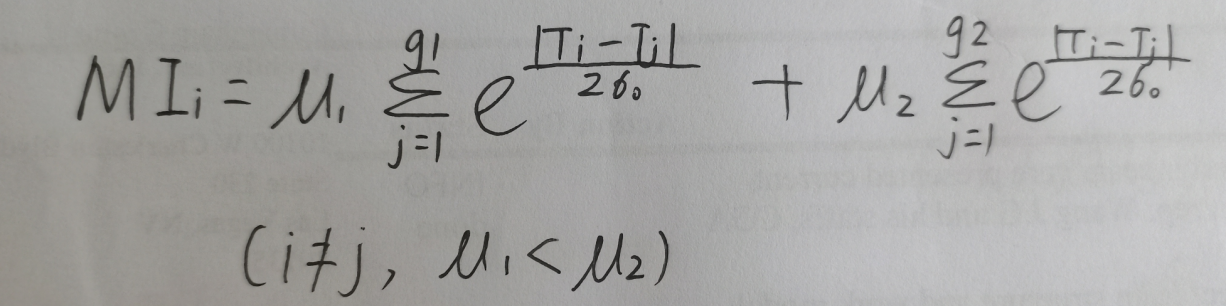 MI_i = μ_1 \sum_{j=1}^{g1} e^{\frac{|T_i - T_j|}{2σ_0}} + μ_2 \sum_{j=1}^{g2} e^{\frac{|T_i - T_j|}{2σ_0}}
(i ≠ j, μ_1 < μ_2)